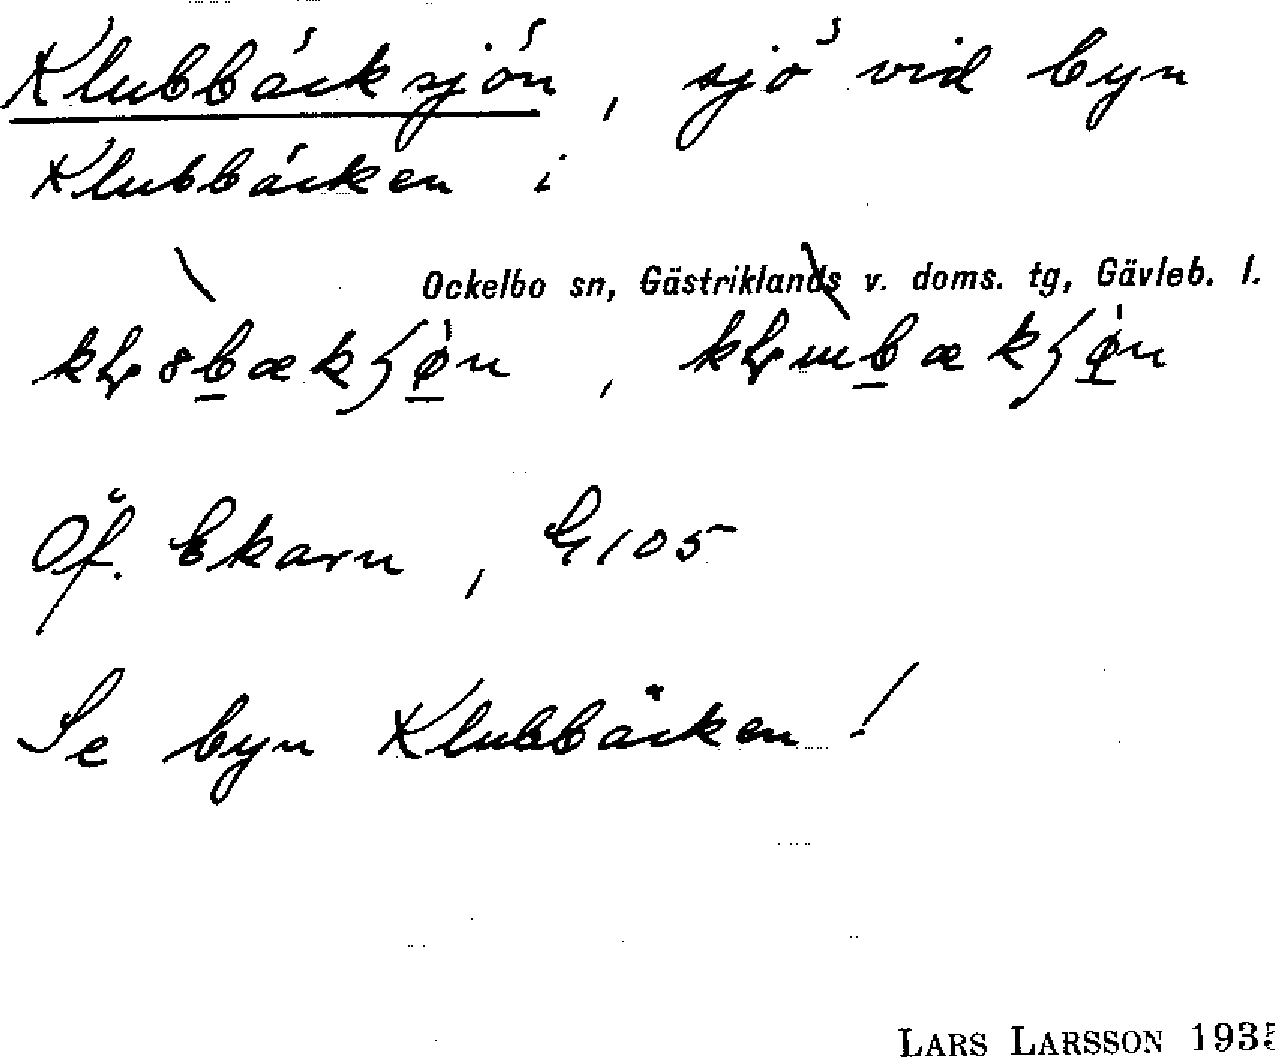 Klubbäcksjön, sjö vid byn
Klubbäcken i
Ockelbo sn, Gästriklands v. doms. tg, Gävleb. l.
Öf. Ekarn, G 105
Se byn Klubbäcken!
LARS LARSSON 1935